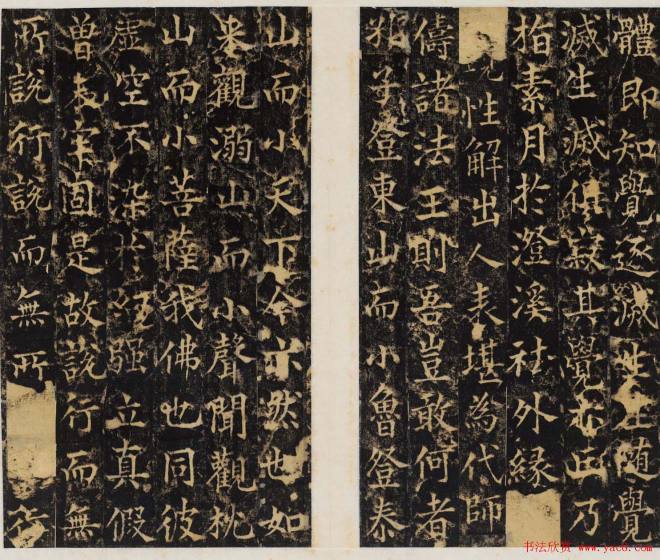 體即知覺逐滅生生随覺
滅生滅俱寂其覺亦正乃
指素月於澄溪祛外緣
性解出人表堪為代師
儔諸法王則吾豈敢何者
邪子登東山而小魯登泰
山而小天下今亦然也如
来觀溺山而小聲聞觀枕
山而小菩薩我佛也同彼
虚空不染於經強立真假
曽未牢固是故說行而無
所說行說而無所行
书法欣赏 www.yac8.com